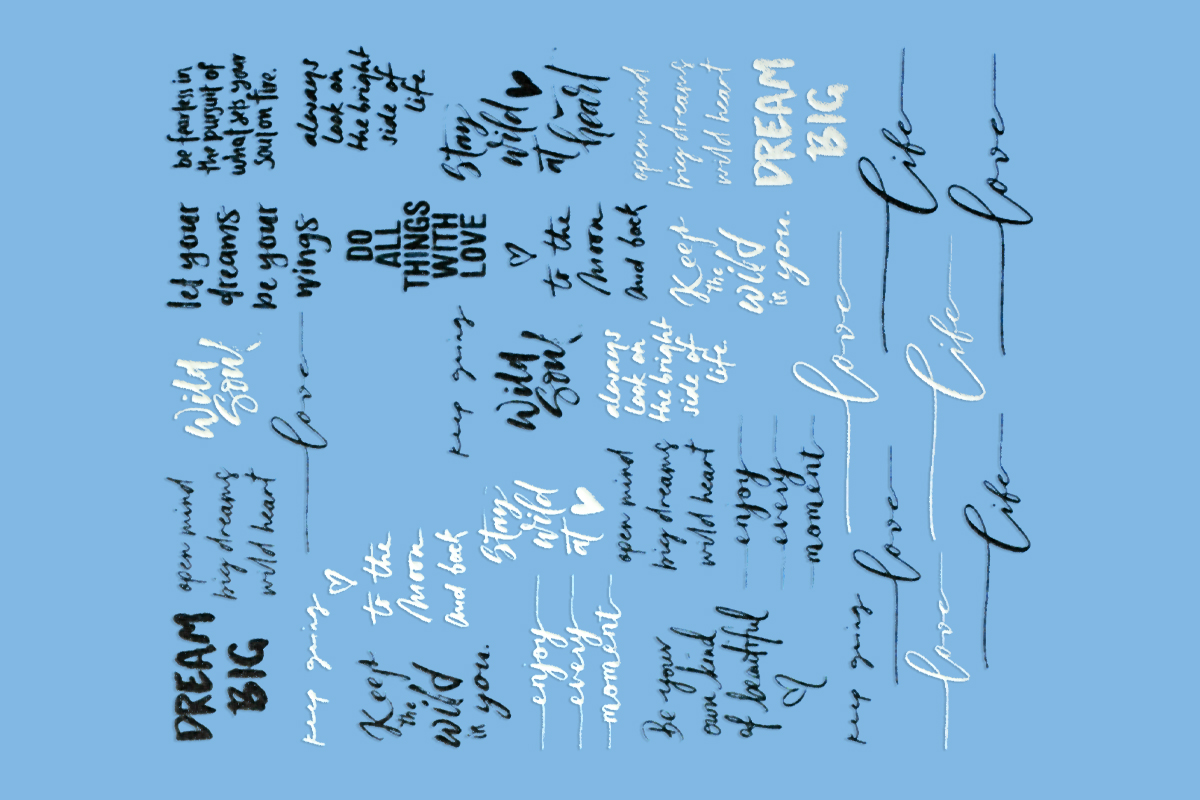 DREAM
BIG
open mind
big dreams
wild heart
Wild
Soul
let your
dreams
be your
wings
be fearless in
the pursuit of
what sets your
soul on fire.
keep going
love
DO
ALL
THINGS
WITH
LOVE
always
look on
the bright
side of
life.
Keep
the
wild
in you.
to the
moon
and back
keep going
Stay
wild
at heart
Stay
wild
at
Wild
Soul
to the
moon
and back
enjoy
every
moment
open mind
big dreams
wild heart
always
look on
the bright
side of
life.
Keep
the
wild
in you.
open mind
big dreams
wild heart
Be your
own kind
of beautiful
enjoy
every
moment
DREAM
BIG
keep going
love
love
life
love
life
life
love